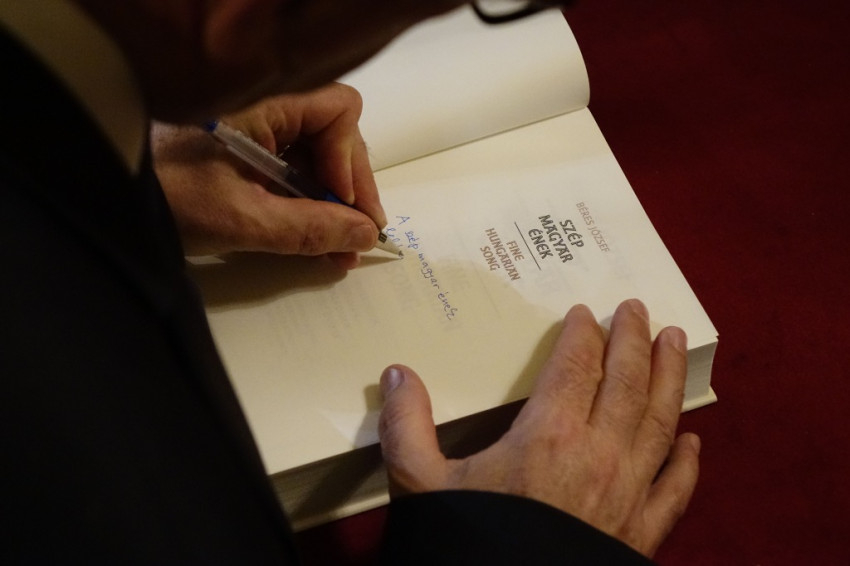 BÉRES JÓZSEF
SZÉP
MAGYAR
ÉNEK
FINE
HUNGARIAN
SONG
A szép magyar ének